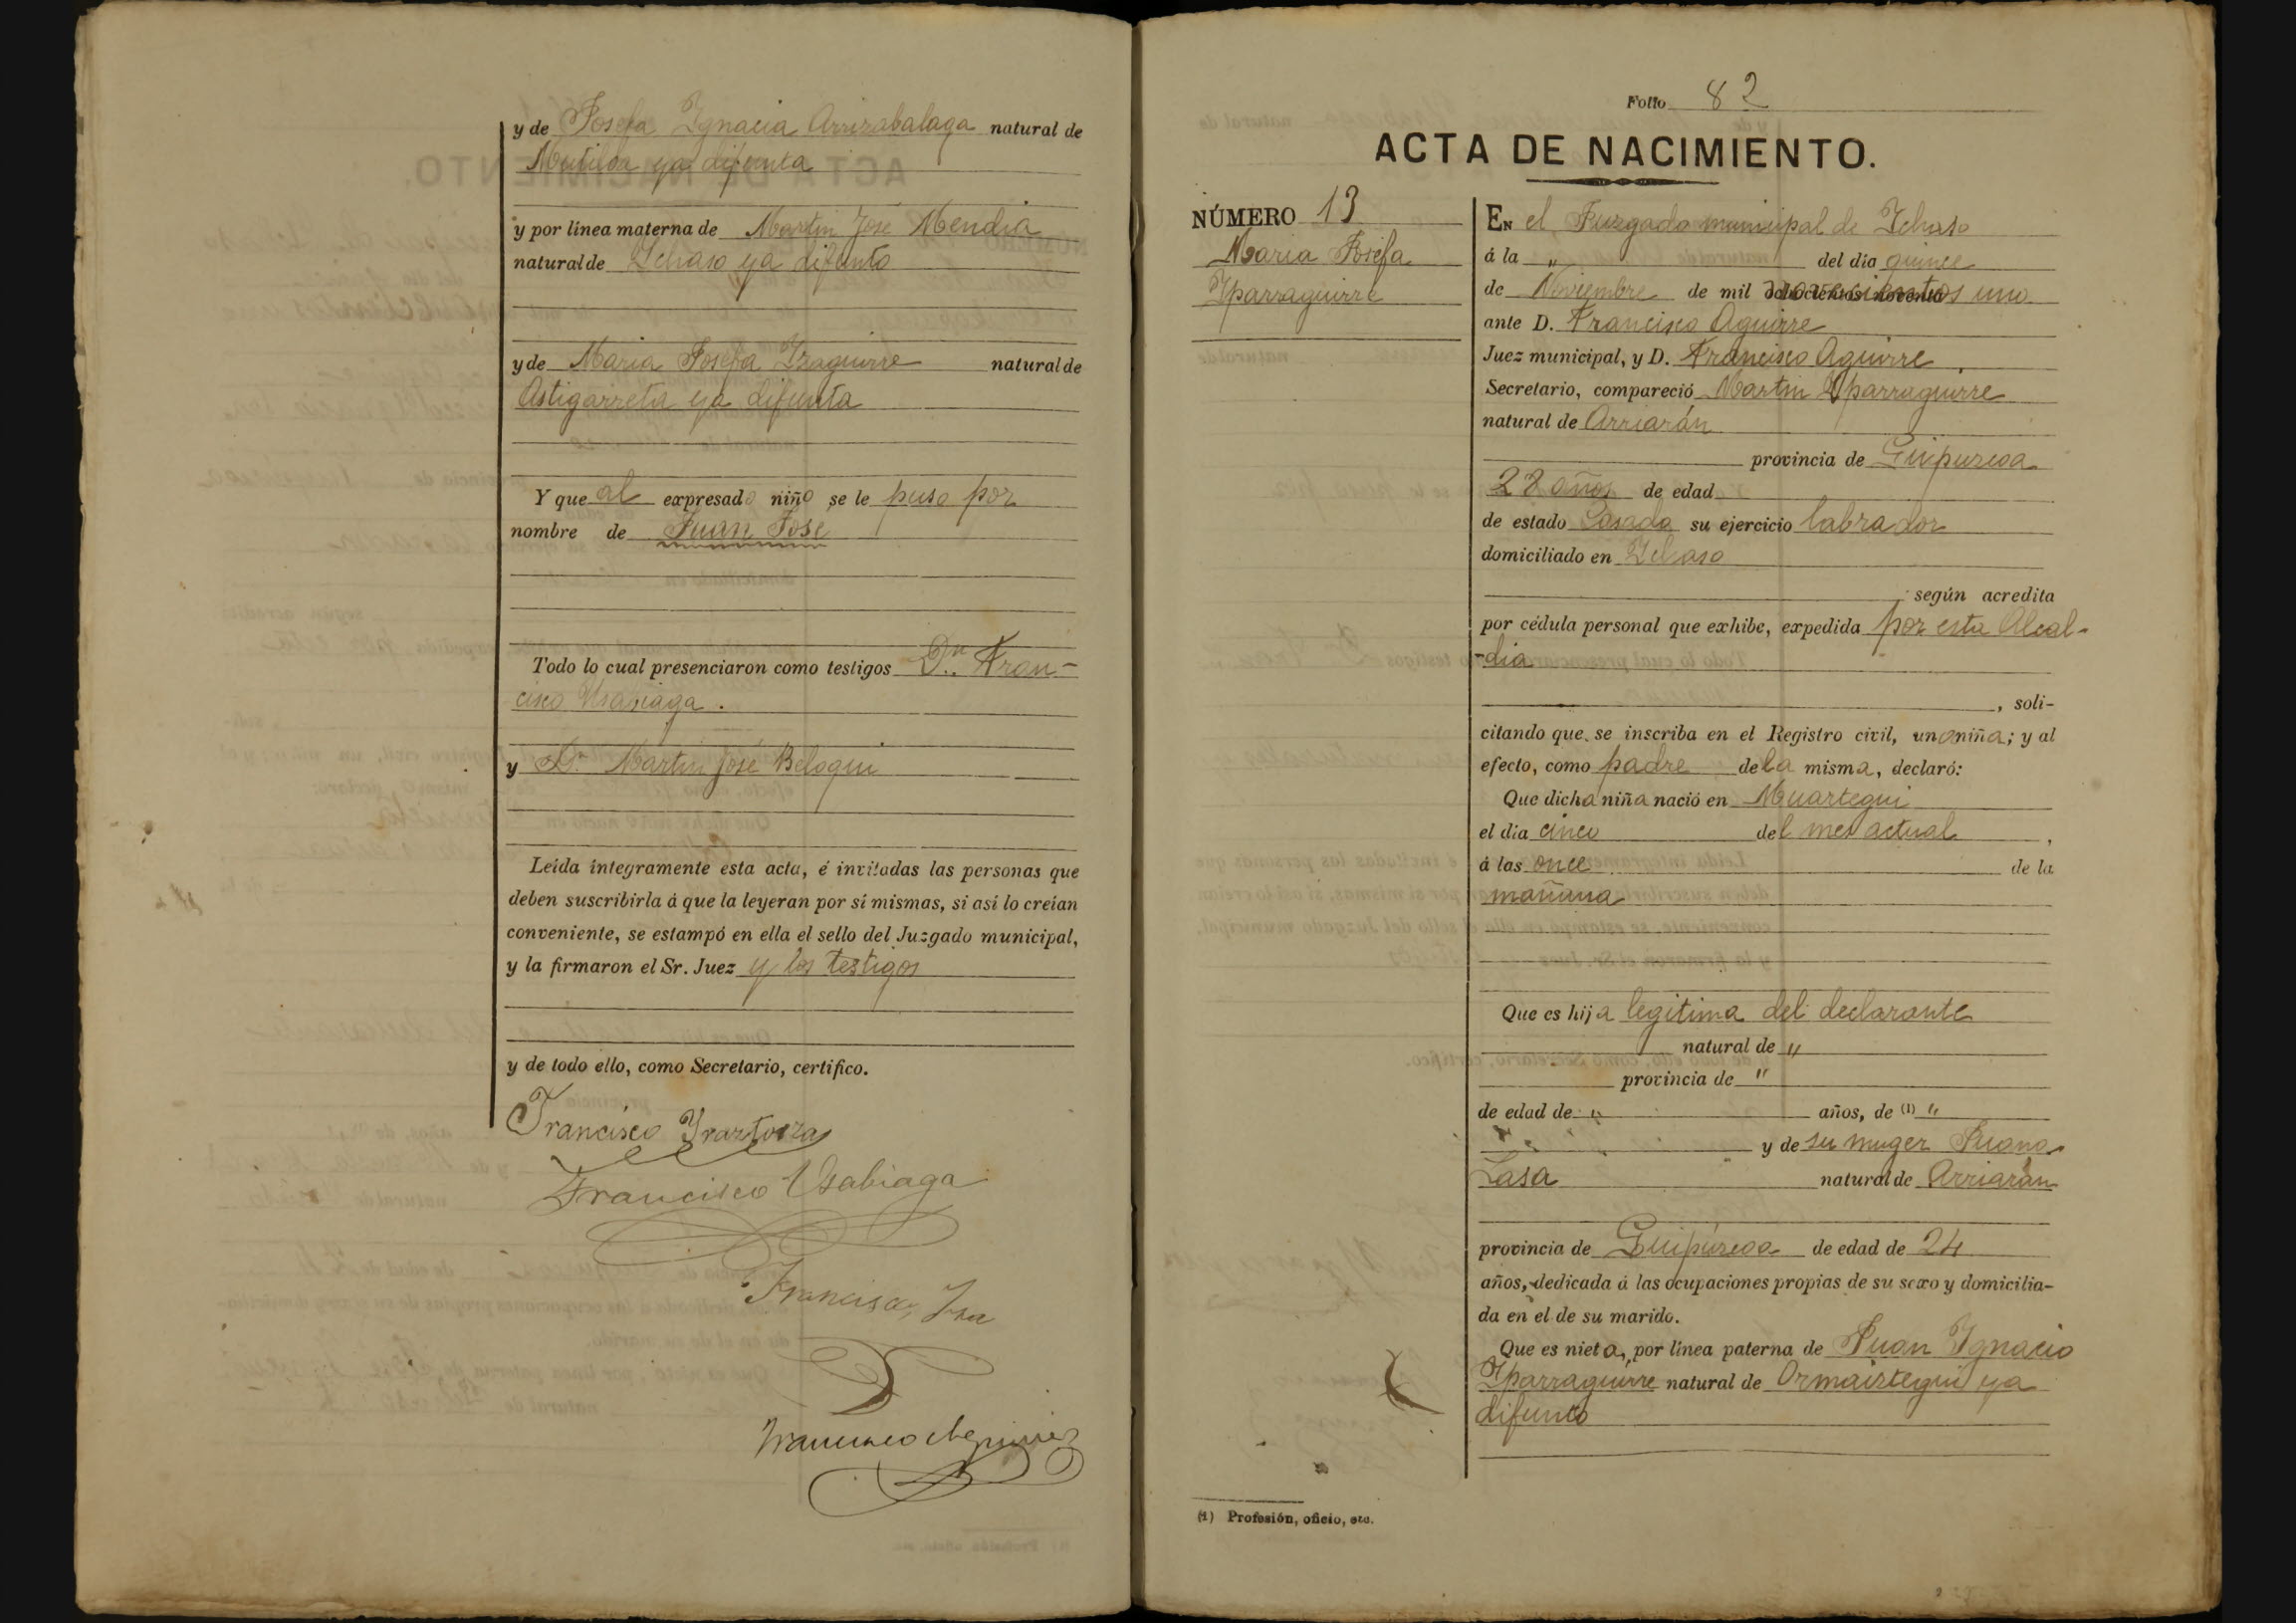 y de Josefa Ygnacia Arrizabalaga natural de
Mutiloa ya difunta
y por línea materna de Martin José Mendia
natural de Ichaso ya difunto
y de Maria Josefa Yzaguirre natural de
Astigarreta ya difunta
Y que al expresado niño se le puso por
nombre de Juan José
Todo lo cual presenciaron como testigos Dn. Fran-
cisco Usabiaga.
y Dn Martin José Beloqui
Leída íntegramente esta acta, é invitadas las personas que
deben suscribirla á que la leyeran por sí mismas, si así lo creían
conveniente, se estampó en ella el sello del Juzgado municipal,
y la firmaron el Sr. Juez y los testigos
y de todo ello, como Secretario, certifico.
Francisco
Francisco Usabiaga
Francisco
Francisco Aguirre
Folio 82
ACTA DE NACIMIENTO.
NÚMERO 13
Maria Josefa
Yparraguirre
En el Juzgado municipal de Ichaso
á la " del día quince
de Noviembre de mil novecientos uno
ante D. Francisco Aguirre
Juez municipal, y D. Francisco Aguirre,
Secretario, compareció Martin Yparraguirre
natural de Arriarán
provincia de Guipuzcoa
28 años de edad
de estado Casado su ejercicio labrador
domiciliado en Ichaso
según acredita
por cédula personal que exhibe, expedida por esta Alcal-
-dia
, soli-
citando que se inscriba en el Registro civil, una niña; y al
efecto, como padre de la misma, declaró:
Que dicha niña nació en Muartegui
el día cinco del mes actual,
á las once de la
mañana
Que es hija legitima del declarante
natural de "
provincia de "
de edad de " años, de (1) "
" y de su muger Juana
Lasa natural de Arriarán
provincia de Guipúzcoa de edad de 24
años, dedicada á las ocupaciones propias de su sexo y domicilia-
da en el de su marido.
Que es nieta, por línea paterna de Juan Ygnacio
Yparraguirre natural de Ormaiztegui ya
difunto
(1) Profesión, oficio, etc.